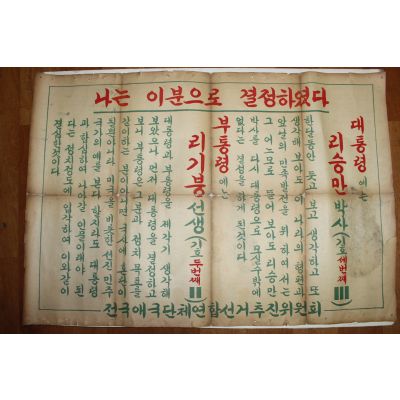 나는 이분으로 결정하였다
대통령에는
리승만박사 (기호 세번째 III)
한달동안 듯고 보고 생각하고 또
생각해 보아도 이 나라의 형편과
앞날의 민족발전을 위하여서는
그 어느모로 들어 보아도 리승만
박사를 다시 대통령으로 모실수밖에
없다는 결정을 하게 된것이다
부통령에는
리기붕선생 (기호 두번째 II)
대통령과 부통령을 제각기 생각해
보았으나 먼저 대통령을 결정하고
보니 부통령은 그분과 정치목표를
같이하는 분이 아니면 국사에 혼란이
미국을 비롯한 선진민주
국가의 예를 본다 할지라도 대통령
과 합심하여 나아갈 인물이래야 된
다는 정치정견에 입각하여 이와같이
결심한것이다
전국애국단체연합선거추진위원회